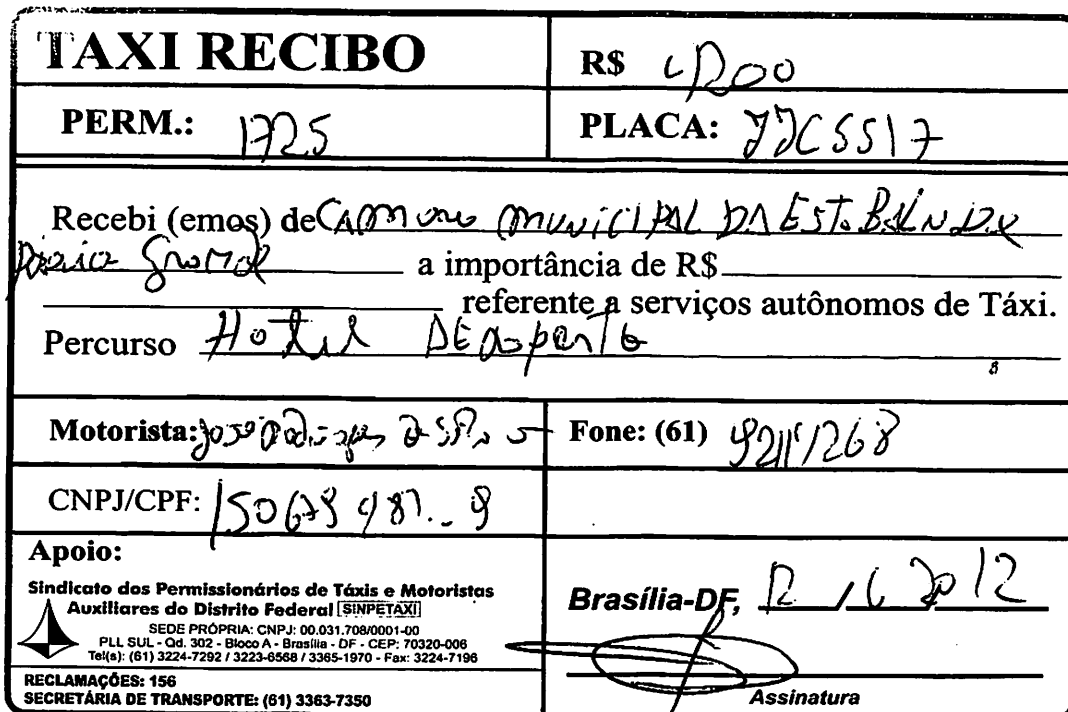 TAXI RECIBO
R$
PERM.: 1725
PLACA: JJC5517
Recebi (emos) de CAMARA MUNICIPAL DA EST. BALN DE
PRAIA GRANDE a importância de R$
referente a serviços autônomos de Táxi.
Percurso Hotel
Motorista: José Rodrigues
Fone: (61) 92111268
CNPJ/CPF:
Apoio:
Sindicato dos Permissionários de Táxis e Motoristas
Auxiliares do Distrito Federal SINPETAXI
SEDE PRÓPRIA: CNPJ: 00.031.708/0001-00
PLL SUL - Qd. 302 - Bloco A - Brasília - DF - CEP: 70320-006
Tel(s): (61) 3224-7292 / 3223-6568 / 3365-1970 - Fax: 3224-7196
RECLAMAÇÕES: 156
SECRETÁRIA DE TRANSPORTE: (61) 3363-7350
Brasília-DF, 12 / 6 2012
Assinatura